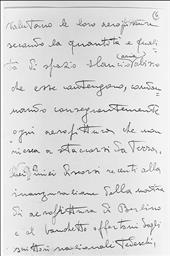 valutano le loro aeropitture
secondo la quantità e quali
tà di spazio
che esse contengono, conda
nando conseguentemente
ogni aeropittura che non
riesca a staccarsi da terra.
Nei miei discorsi recenti alla
inaugurazione della mostra
di aeropittura di Berlino
e al banchetto offertomi dagli
scrittori nazionali tedeschi,